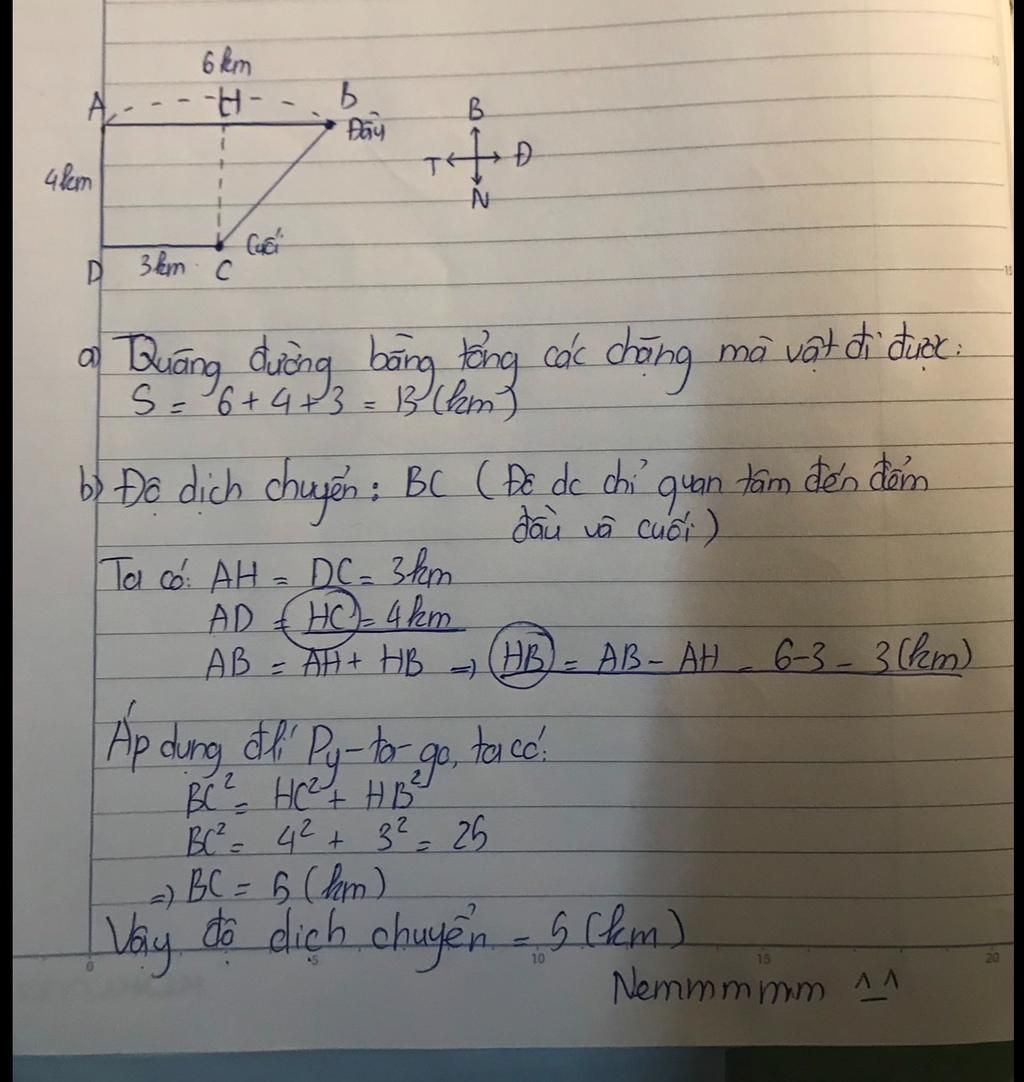 6 km
A H b
Đầu
4km
Cuối
D 3km C
B
T Đ
N
a) Quãng đường bằng tổng các chặng mà vật đi được:
S = 6 + 4 + 3 = 13 (km)
b) Độ dịch chuyển: BC (Độ dc chỉ quan tâm đến điểm
đầu và cuối)
Ta có: AH = DC = 3km
AD = HC = 4km
AB = AH + HB => HB = AB - AH = 6-3 = 3(km)
Áp dụng đlí Py-ta-go, ta có:
BC² = HC² + HB²
BC² = 4² + 3² = 25
=> BC = 5 (km)
Vậy độ dịch chuyển = 5 (km)
Nemmmmm ^_^
0 5 10 15 20
10
15